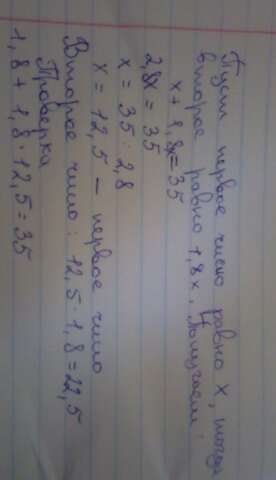 Пусть первое число равно x, тогда
второе равно 1,8x. Получаем:
x + 1,8x = 35
2,8x = 35
x = 35 : 2,8
x = 12,5 – первое число
Второе число: 12,5 · 1,8 = 22,5
Проверка
1,8 + 1,8 · 12,5 = 35